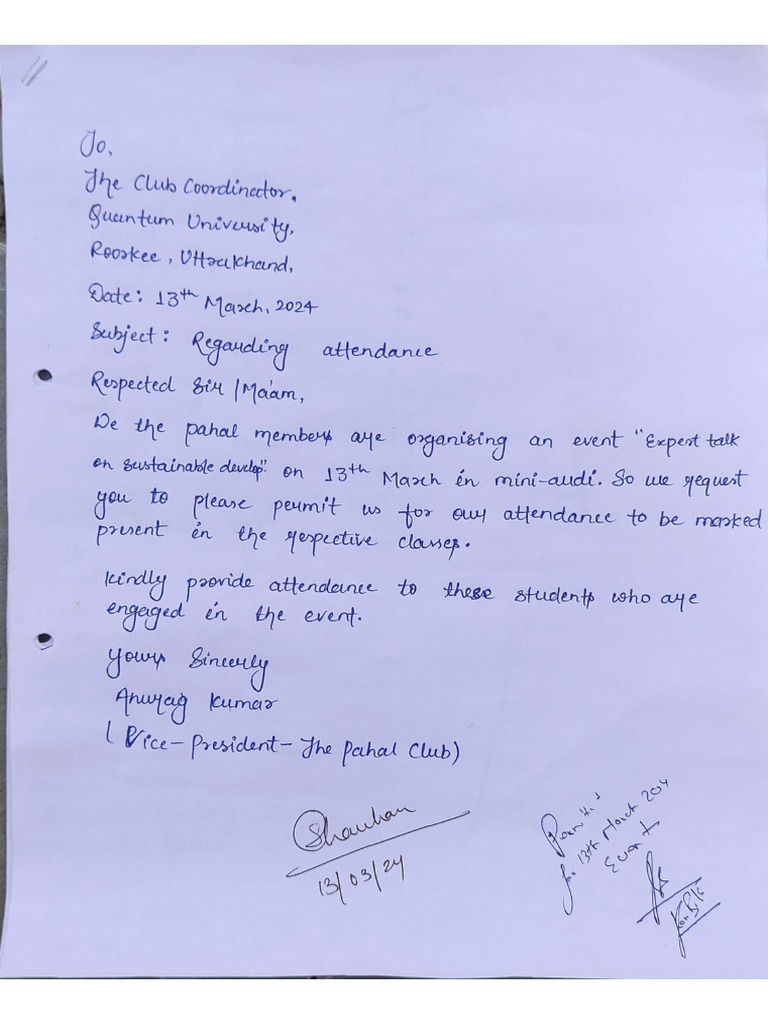 To,
The Club Coordinator,
Quantum University,
Roorkee, Uttrakhand,
Date: 13th March, 2024
Subject: Regarding attendance
Respected Sir/Ma'am,
We the pahal members are organising an event "Expert talk
on sustainable develop" on 13th March in mini-audi. So we request
you to please permit us for our attendance to be marked
present in the respective classes.
Kindly provide attendance to these students who are
engaged in the event.
Yours Sincerly
Anurag Kumar
(Vice-President-The Pahal Club)
13/03/24
for 13th March
Event